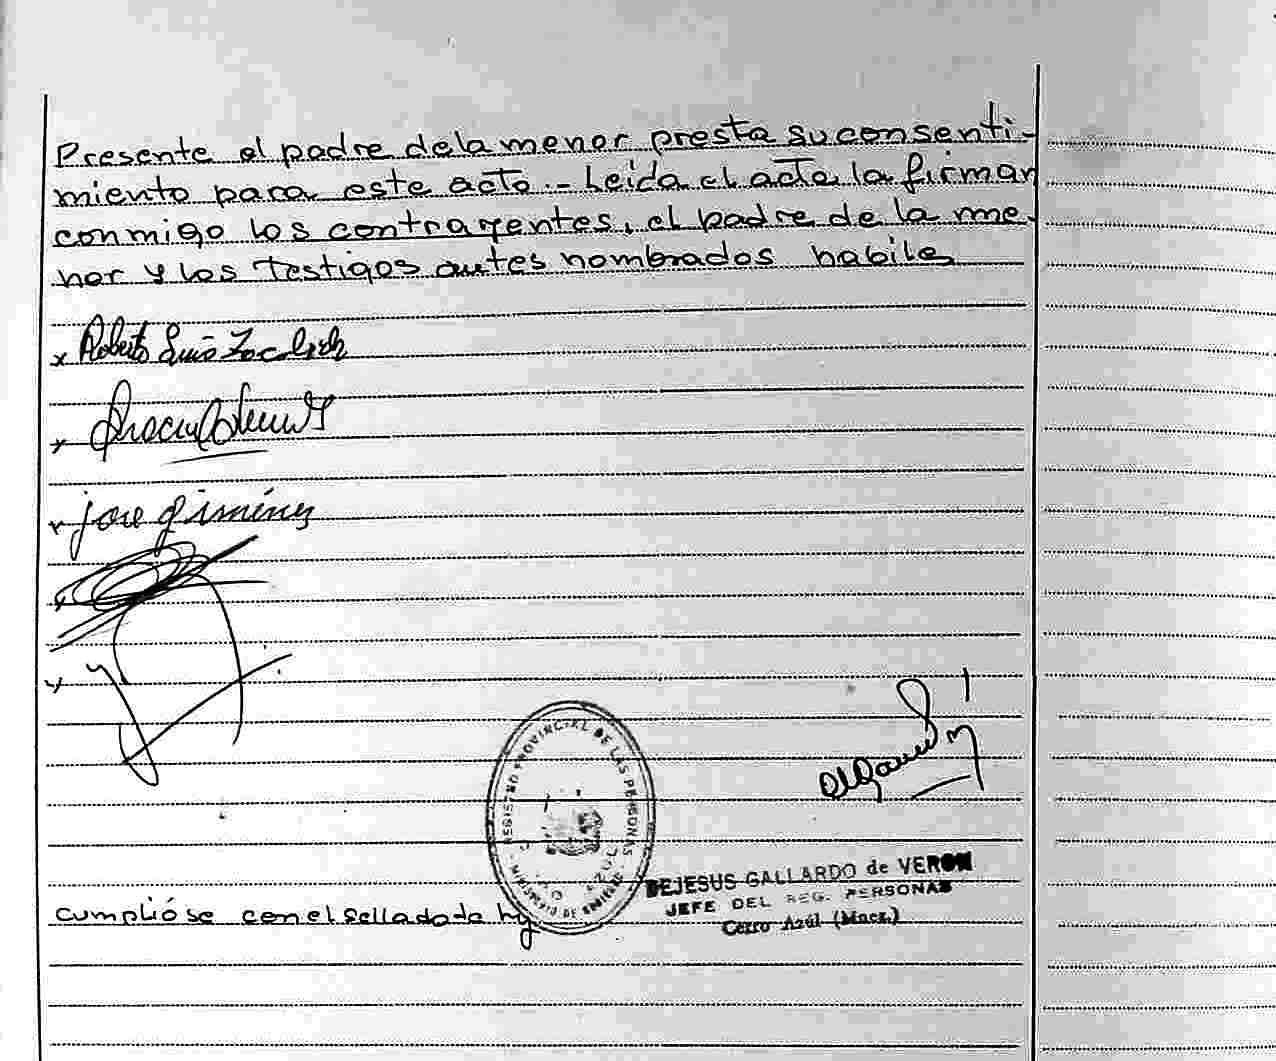 Presente el padre de la menor presta su consenti-
miento para este acto.- Leida el acta la firman
conmigo los contrayentes, el padre de la me-
nor y los testigos antes nombrados habile
x Roberto Luis
x
x jose Giménez
x
x
REGISTRO PROVINCIAL DE LAS PERSONAS
MINISTERIO DE GOBIERNO
DEJESUS GALLARDO de VERON
JEFE DEL REG. PERSONAS
Cerro Azúl (Mnes.)
cumplióse con el sellado de ley